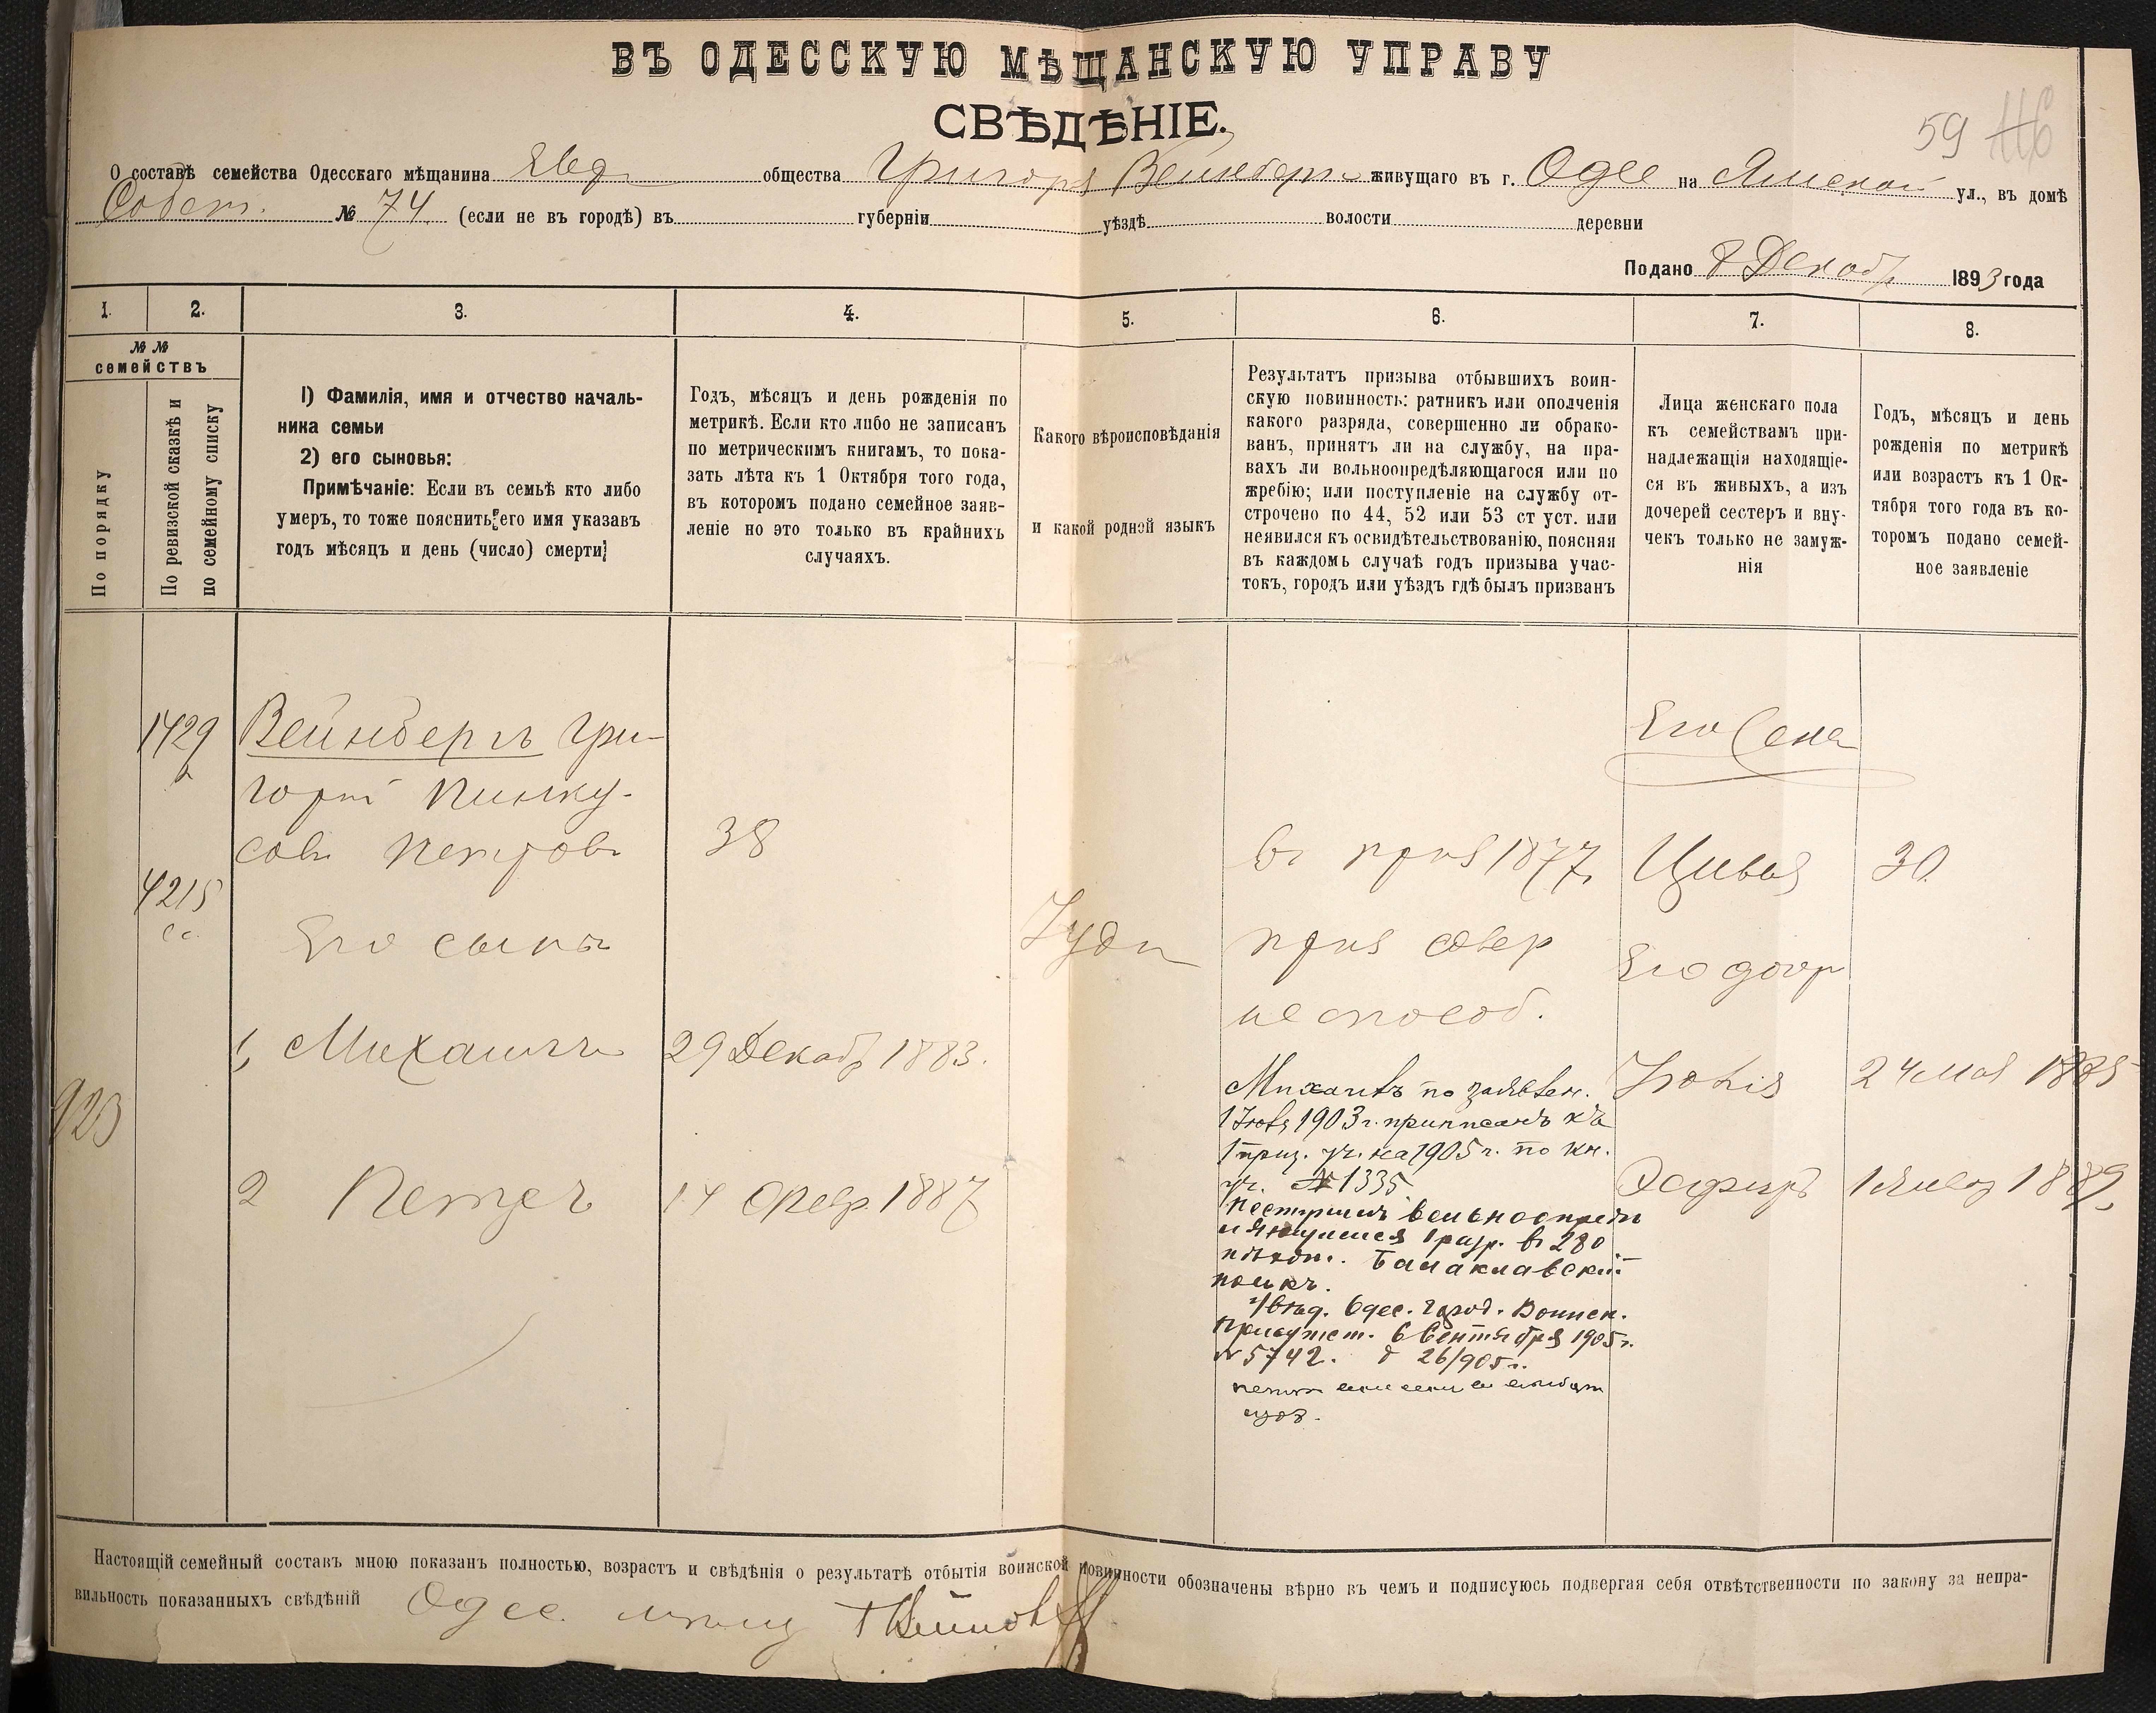 ВЪ ОДЕССКУЮ МѢЩАНСКУЮ УПРАВУ
СВѢДѢНІЕ.
59
О составѣ семейства Одесскаго мѣщанина Евр общества Григоря Вейнберга живущаго въ г. Одес на Ямской ул., въ домѣ
Собст. № 74 (если не въ городѣ) въ губерніи уѣздѣ волости деревни
Подано 8 Декабр 1893 года
1. 2. 3. 4. 5. 6. 7. 8.
№ №
семействъ
По порядку
По ревизской сказкѣ и
по семейному списку
1) Фамилія, имя и отчество началь-
ника семьи
2) его сыновья:
Примѣчаніе: Если въ семьѣ кто либо
умеръ, то тоже пояснить его имя указавъ
годъ мѣсяцъ и день (число) смерти
Годъ, мѣсяцъ и день рожденія по
метрикѣ. Если кто либо не записанъ
по метрическимъ книгамъ, то пока-
зать лѣта къ 1 Октября того года,
въ которомъ подано семейное заяв-
леніе но это только въ крайнихъ
случаяхъ.
Какого вѣроисповѣданія
и какой родной языкъ
Результатъ призыва отбывшихъ воин-
скую повинность: ратникъ или ополченія
какого разряда, совершенно ли обрако-
ванъ, принятъ ли на службу, на пра-
вахъ ли вольноопредѣляющагося или по
жребію; или поступленіе на службу от-
строчено по 44, 52 или 53 ст уст. или
неявился къ освидѣтельствованію, поясняя
въ каждомъ случаѣ годъ призыва учас-
токъ, городъ или уѣздъ гдѣ былъ призванъ
Лица женскаго пола
къ семействамъ при-
надлежащія находящіе-
ся въ живыхъ, а изъ
дочерей сестеръ и вну-
чекъ только не замуж-
нія
Годъ, мѣсяцъ и день
рожденія по метрикѣ
или возрастъ къ 1 Ок-
тября того года въ ко-
торомъ подано семей-
ное заявленіе
1429
Вейнбергъ Гри-
горій Пинку-
совъ Петровъ 38
4215
Его сынъ
1, Михаилъ 29 Декабр 1883.
923
2 Петръ 14 Февр. 1887
Іуд
въ приз 1877.
приз совер
не способ.
Михаилъ по заявлен.
1903 г. приписанъ къ
1 приз. уч. на 1905 г. по кн.
уч. № 1335
Поступилъ вольноопредѣ
ляющимся 1 разр. въ 280
пѣхот. Балаклавскій
полкъ.
Увѣд. Одес. Город. Воинск.
Присутст. 6 Сентября 1905 г.
№ 5742. д 26/905 г.
Его Жена
Цивья 30
Его дочр
24 Мая 1885
Эсфирь 1889
Настоящій семейный составъ мною показанъ полностью, возрастъ и свѣдѣнія о результатѣ отбытія воинской повинности обозначены вѣрно въ чемъ и подписуюсь подвергая себя отвѣтственности по закону за непра-
вильность показанныхъ свѣдѣній Одес.